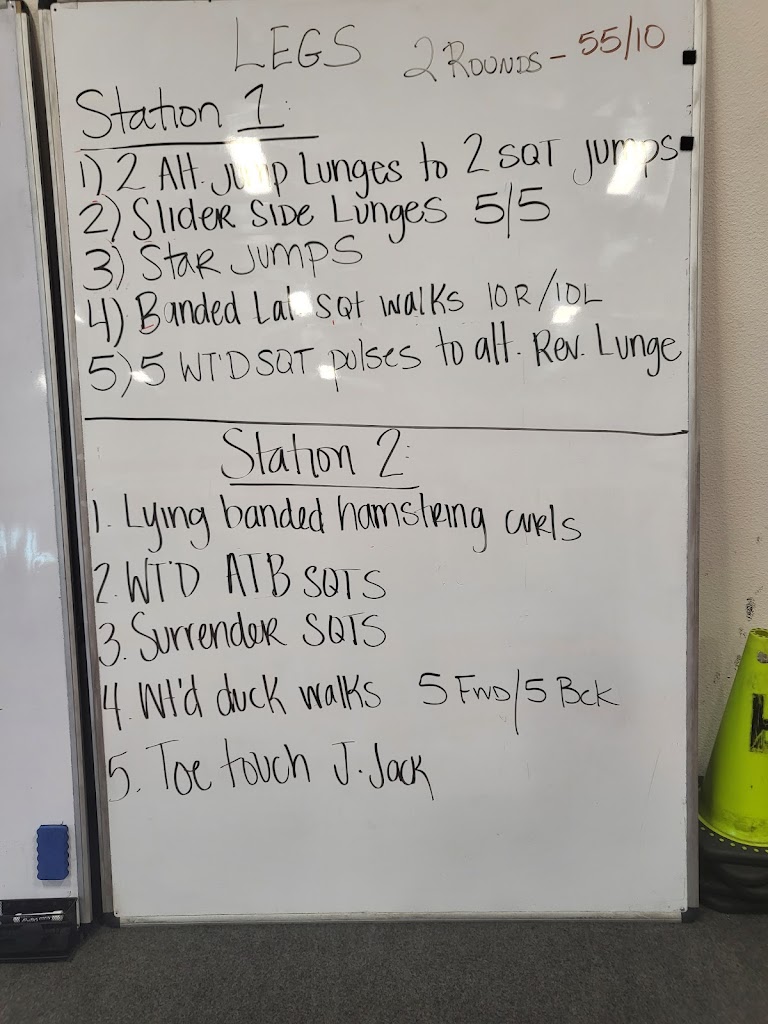 LEGS 2 ROUNDS - 55/10
Station 1:
1) 2 Alt. jump Lunges to 2 SQT jumps
2) Slider Side Lunges 5/5
3) Star jumps
4) Banded Lat. sqt walks 10R/10L
5) 5 WT'D SQT pulses to alt. Rev. Lunge
Station 2:
1. Lying banded hamstring curls
2. WT'D ATB SQTS
3. Surrender SQTS
4. Wt'd duck walks 5 Fwd/5 Bck
5. Toe touch J. Jack